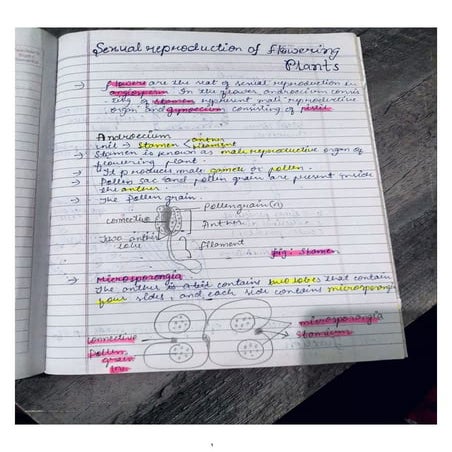 Sexual reproduction of Flowering
Plants
→ flowers are the seat of sexual reproduction in
angiosperm. In the flower, androecium consis
ting of stamen represent male reproductive
organ and gynoecium consisting of pistil
Androecium
unit → Stamen < anther
filament
→ Stamen is known as male reproductive organ of
flowering plant.
→ It produces male gamete or pollen.
→ Pollen sac and pollen grain are present inside
the anther.
→ The Pollen grain.
Pollengrain(n)
connective
Anther
Two anther
lobe
filament
fig: Stamen
→ Microsporangia
The anther is contains two lobes that contain
four sides, and each side contains microsporangia
microsporangia
connective
Stomium
Pollen
grain